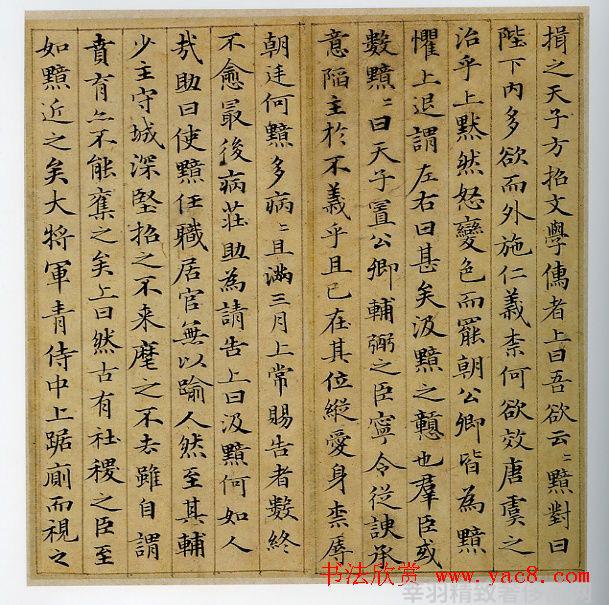 損之天子方招文學儒者上曰吾欲云〻黯對曰
陛下內多欲而外施仁義柰何欲效唐虞之
治乎上黙然怒變色而罷朝公卿皆為黯
懼上退謂左右曰甚矣汲黯之戇也羣臣或
數黯〻曰天子置公卿輔弼之臣寧令從諛承
意陷主於不義乎且已在其位縱愛身柰辱
朝廷何黯多病〻且滿三月上常賜告者數終
不愈最後病莊助為請告上曰汲黯何如人
㢤助曰使黯任職居官無以踰人然至其輔
少主守城深堅招之不来麾之不去雖自謂
賁育亦不能奪之矣上曰然古有社稷之臣至
如黯近之矣大將軍青侍中上踞廁而視之
书法欣赏 www.yac8.com